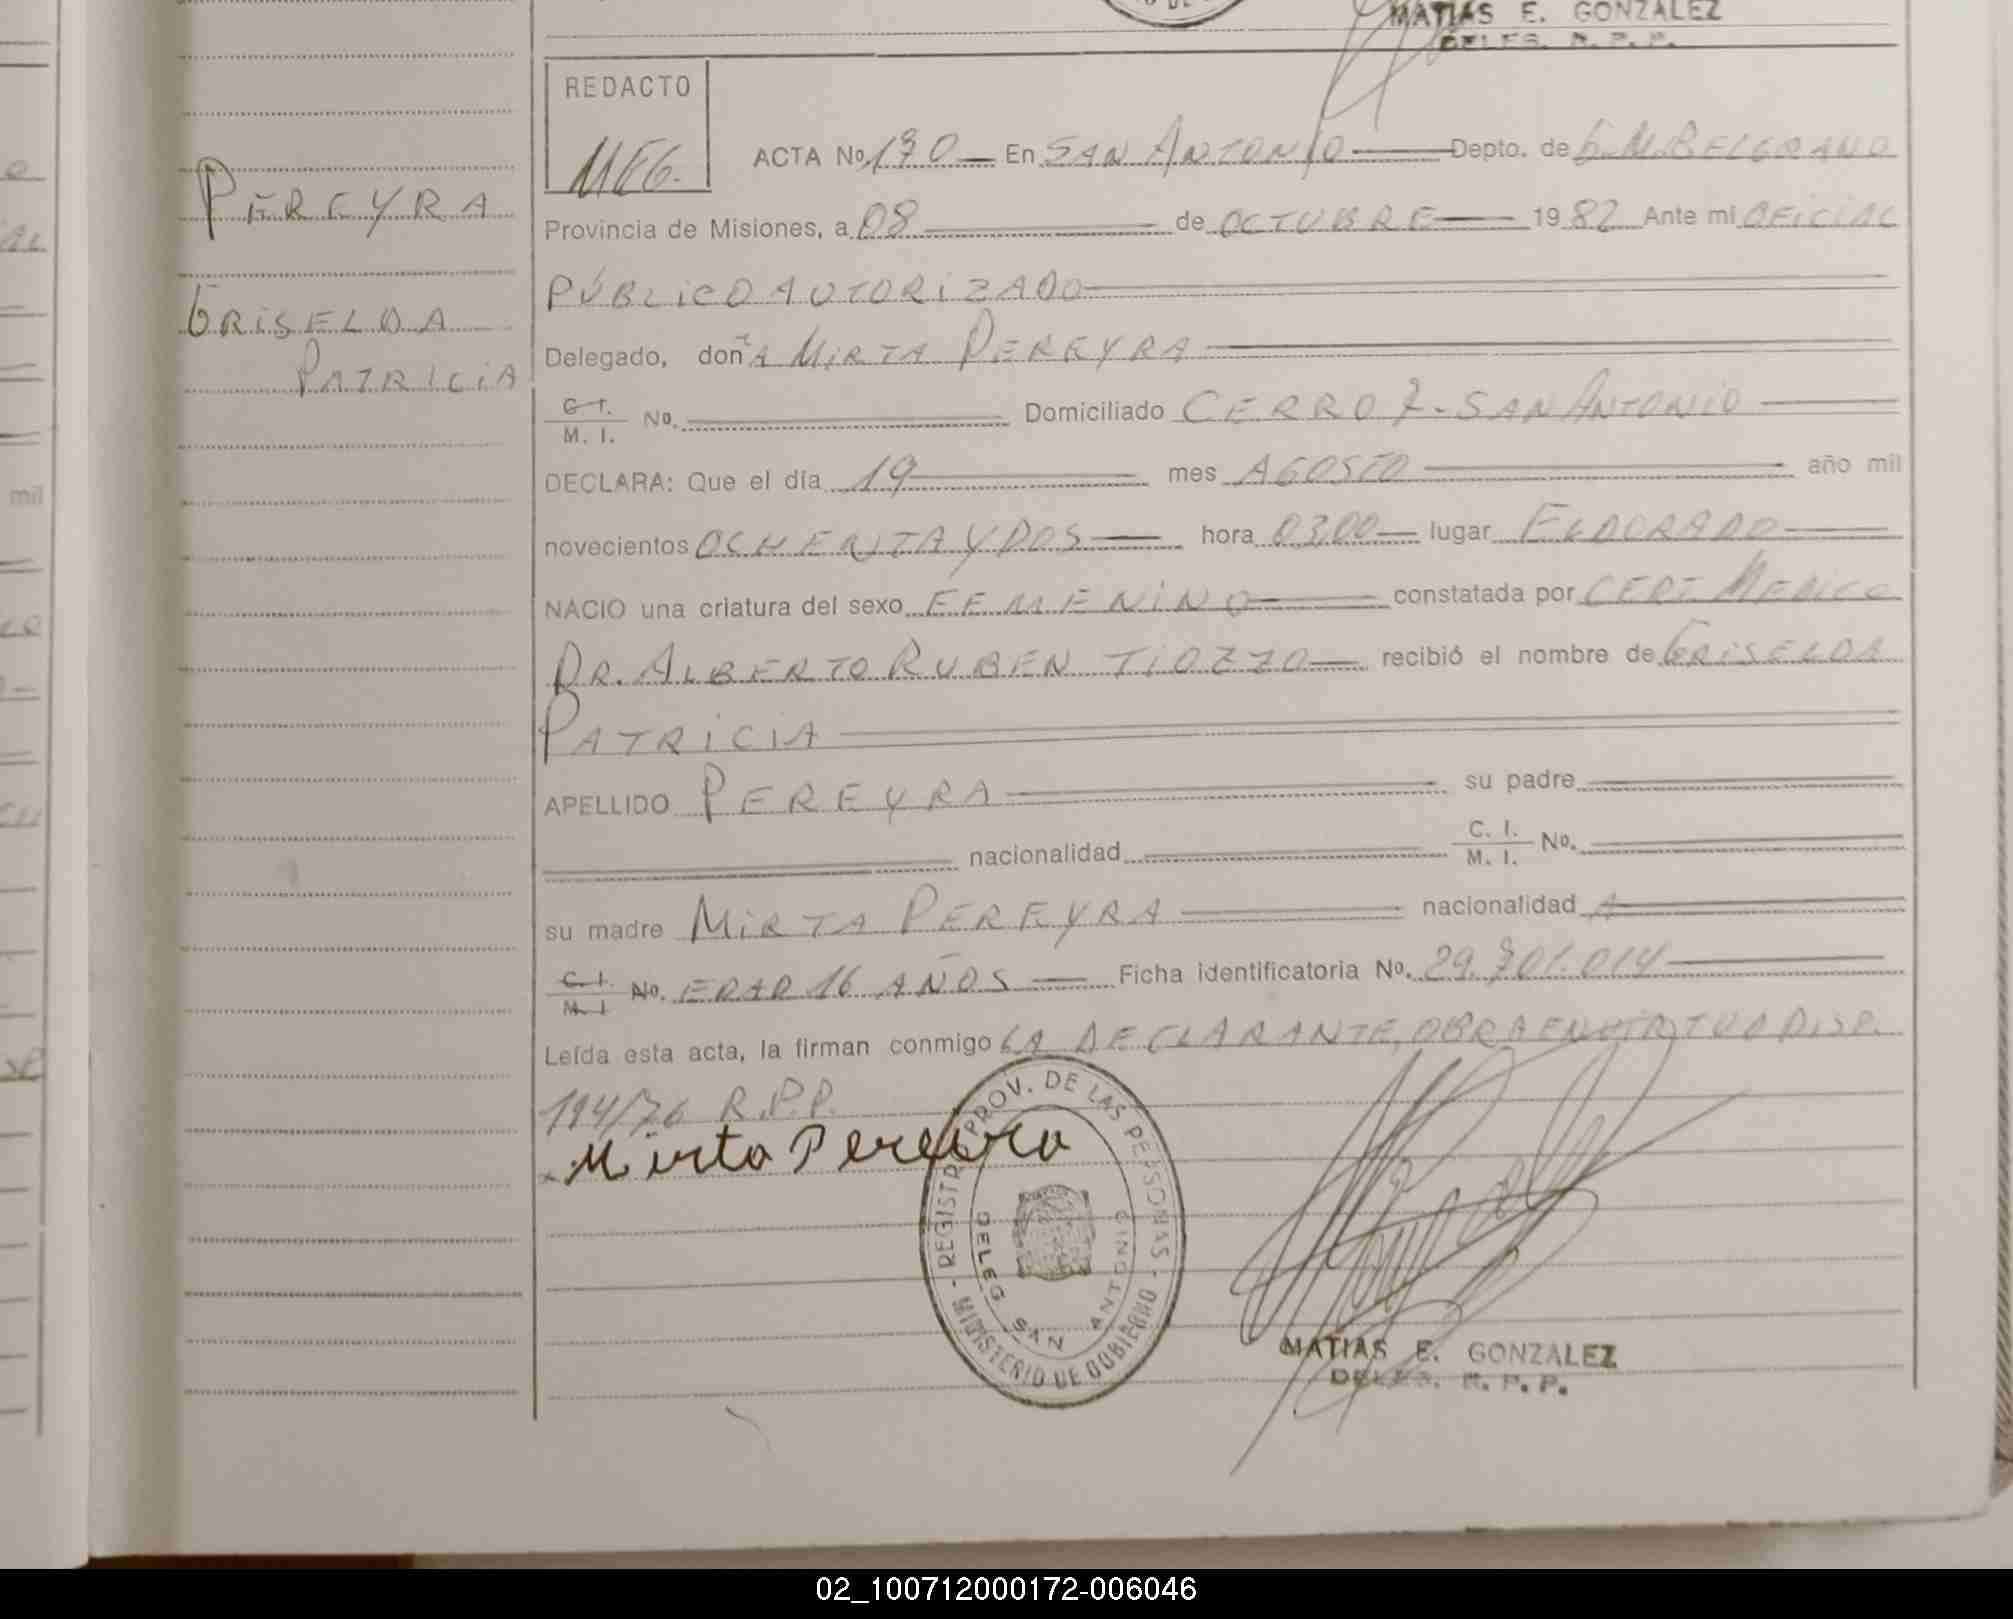 MATIAS E. GONZALEZ
DELEG. R. P. P.
REDACTO
MEG.
ACTA No. 170 En SAN ANTONIO Depto. de G. M. BELGRANO
Provincia de Misiones, a 08 de OCTUBRE 1982 Ante mi OFICIAL
PÚBLICO AUTORIZADO
Delegado, doña MIRTA PEREYRA
C. I. / M. I. No. Domiciliado CERRO 7 - SAN ANTONIO
DECLARA: Que el día 19 mes AGOSTO año mil
novecientos OCHENTA Y DOS hora 03,00 lugar ELDORADO
NACIO una criatura del sexo FEMENINO constatada por CERT. MEDICO
DR. ALBERTO RUBEN TIOZZO recibió el nombre de GRISELDA
PATRICIA
APELLIDO PEREYRA su padre
nacionalidad C. I. / M. I. No.
su madre MIRTA PEREYRA nacionalidad A
C. I. / M. I. No. EDAD 16 AÑOS Ficha identificatoria No. 29.701.014
Leída esta acta, la firman conmigo LA DECLARANTE, OBRA EN VIRTUD DISP.
194/76 R.P.P.
Mirta Pereira
REGISTRO PROV. DE LAS PERSONAS - MINISTERIO DE GOBIERNO -
DELEG SAN ANTONIO
MATIAS E. GONZALEZ
DELEG. R. P. P.
PEREYRA
GRISELDA
PATRICIA
mil
02_100712000172-006046